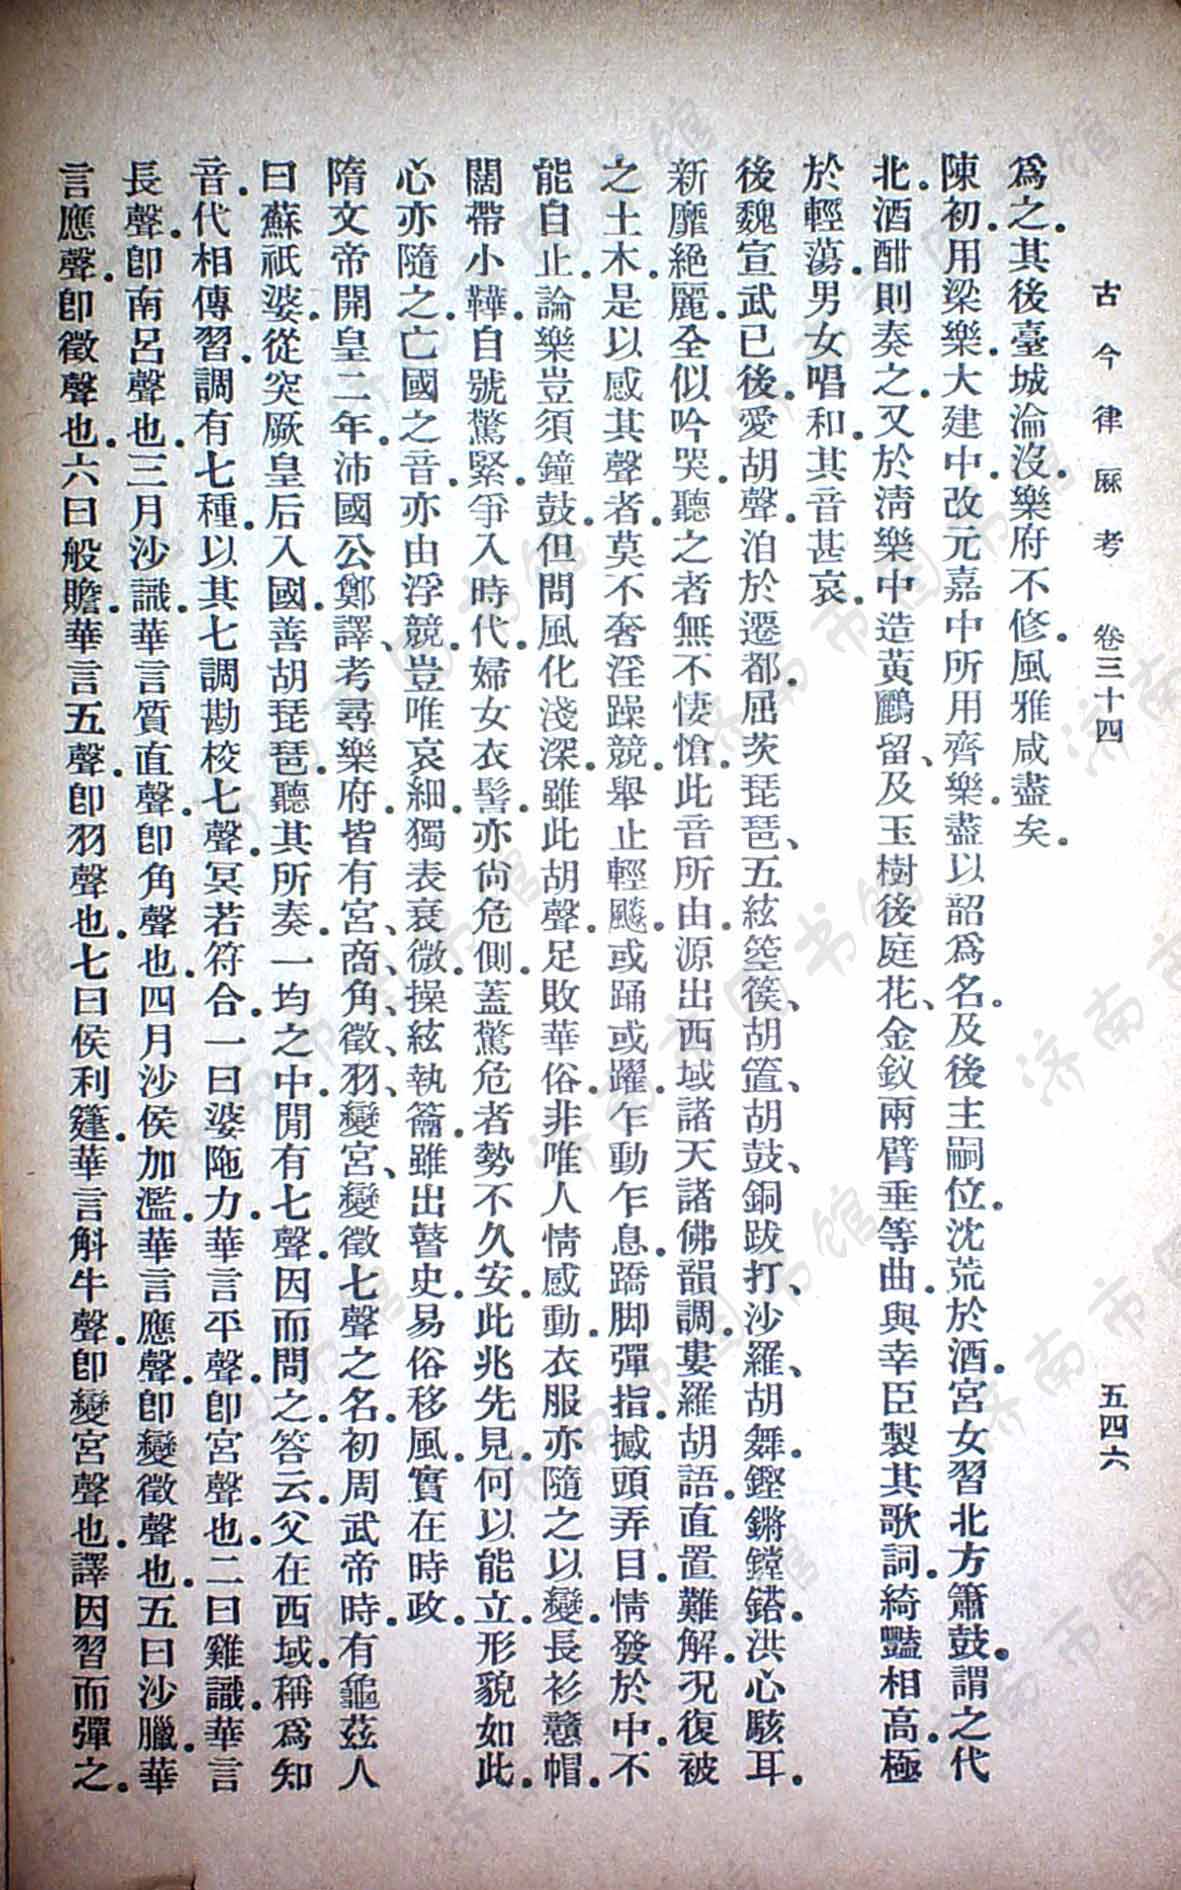 古今律厤考　卷三十四　五四六
爲之。其後臺城淪沒。樂府不修。風雅咸盡矣。
陳初。用梁樂。大建中。改元嘉中所用齊樂。盡以韶爲名。及後主嗣位。沈荒於酒。宮女習北方簫鼓。謂之代
北。酒酣則奏之。又於淸樂中造黃鸝留、及玉樹後庭花、金釵兩臂垂等曲。與幸臣製其歌詞。綺豔相高。極
於輕蕩。男女唱和。其音甚哀。
後魏宣武已後。愛胡聲。洎於遷都。屈茨琵琶、五絃箜篌、胡䈕、胡鼓、銅跋打、沙羅、胡舞。鏗鏘鏜鎝。洪心駭耳。
新靡絕麗。全似吟哭。聽之者無不悽愴。此音所由。源出西域諸天諸佛韻調。婁羅胡語。直置難解。況復被
之土木。是以感其聲者。莫不奢淫躁競。舉止輕飈。或踊或躍。乍動乍息。蹻脚彈指。撼頭弄目。情發於中。不
能自止。論樂豈須鐘鼓。但問風化淺深。雖此胡聲。足敗華俗。非唯人情感動。衣服亦隨之以變。長衫戇帽。
闊帶小鞾。自號驚緊。爭入時代。婦女衣髻。亦尙危側。蓋驚危者勢不久安。此兆先見。何以能立。形貌如此。
心亦隨之。亡國之音。亦由浮競。豈唯哀細。獨表衰微。操絃執籥。雖出瞽史。易俗移風。實在時政。
隋文帝開皇二年。沛國公鄭譯、考尋樂府。皆有宮、商、角、徵、羽、變宮、變徵七聲之名。初周武帝時。有龜茲人
曰蘇祇婆。從突厥皇后入國。善胡琵琶。聽其所奏。一均之中。閒有七聲。因而問之。答云。父在西域。稱爲知
音。代相傳習。調有七種。以其七調勘校七聲。冥若符合。一曰婆陁力。華言平聲。卽宮聲也。二曰雞識。華言
長聲。卽南呂聲也。三月沙識。華言質直聲。卽角聲也。四月沙侯加濫。華言應聲。卽變徵聲也。五曰沙臘。華
言應聲。卽徵聲也。六曰般贍。華言五聲。卽羽聲也。七曰俟利䈭。華言斛牛聲。卽變宮聲也。譯因習而彈之。
济南市图书馆